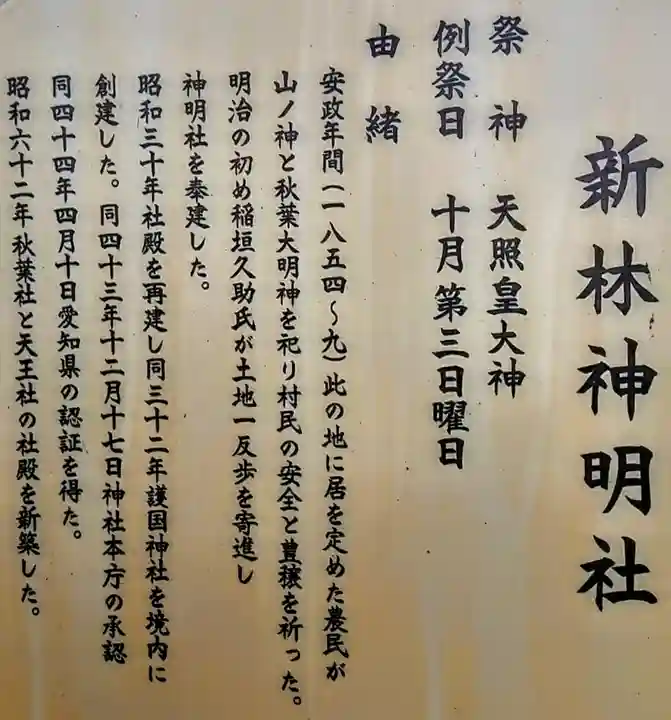 新林神明社
祭神 天照皇大神
例祭日 十月第三日曜日
由緒
安政年間(一八五四～九)此の地に居を定めた農民が
山ノ神と秋葉大明神を祀り村民の安全と豊穣を祈った。
明治の初め稲垣久助氏が土地一反歩を寄進し
神明社を奉建した。
昭和三十年社殿を再建し同三十二年護国神社を境内に
創建した。同四十三年十二月十七日神社本庁の承認
同四十四年四月十日愛知県の認証を得た。
昭和六十二年秋葉社と天王社の社殿を新築した。